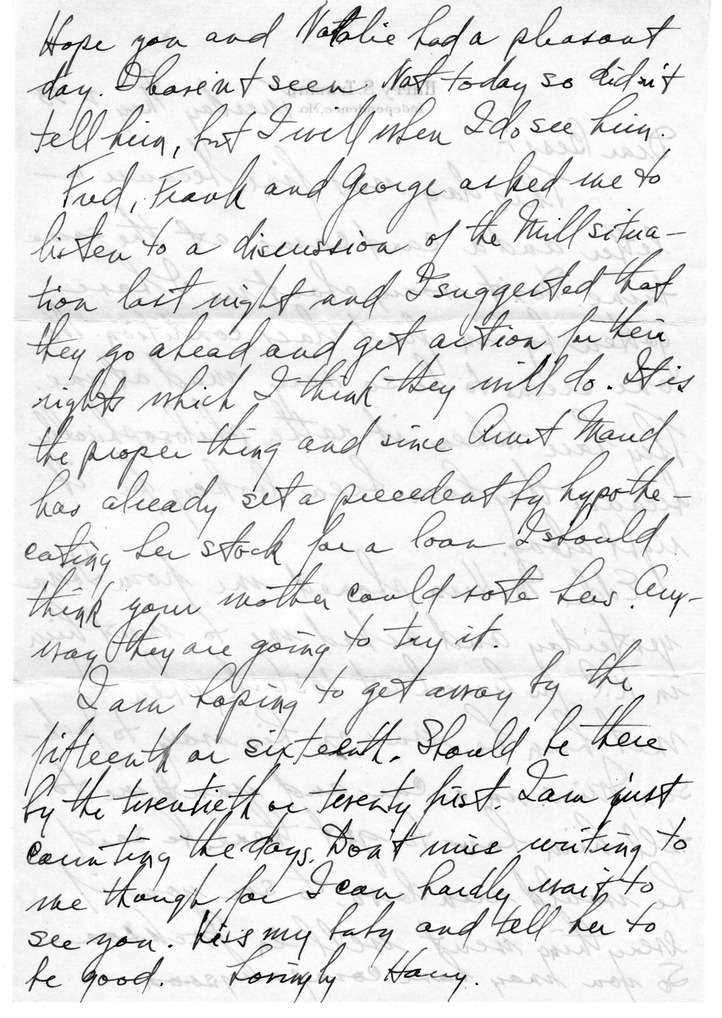 Hope you and Natalie had a pleasant
day. I haven't seen Nat today so didn't
tell him, but I will when I do see him.
Fred, Frank and George asked me to
listen to a discussion of the Mill situa-
tion last night and I suggested that
they go ahead and get action for their
rights which I think they will do. It is
the proper thing and since Aunt Maud
has already set a precedent by hypothe-
cating her stock for a loan I should
think your mother could vote hers. Any-
way they are going to try it.
I am hoping to get away by the
fifteenth or sixteenth. Should be there
by the twentieth or twenty first. I am just
counting the days. Don't miss writing to
me though for I can hardly wait to
see you. Kiss my baby and tell her to
be good. Lovingly Harry.